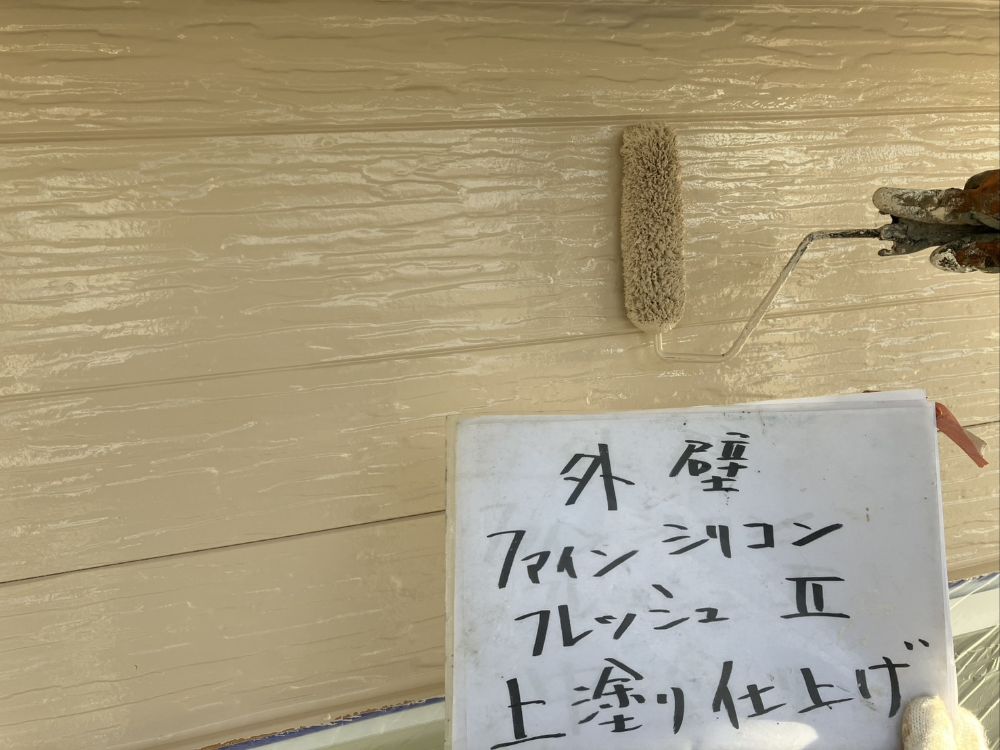 外壁
ファインシリコン
フレッシュⅡ
上塗り仕上げ